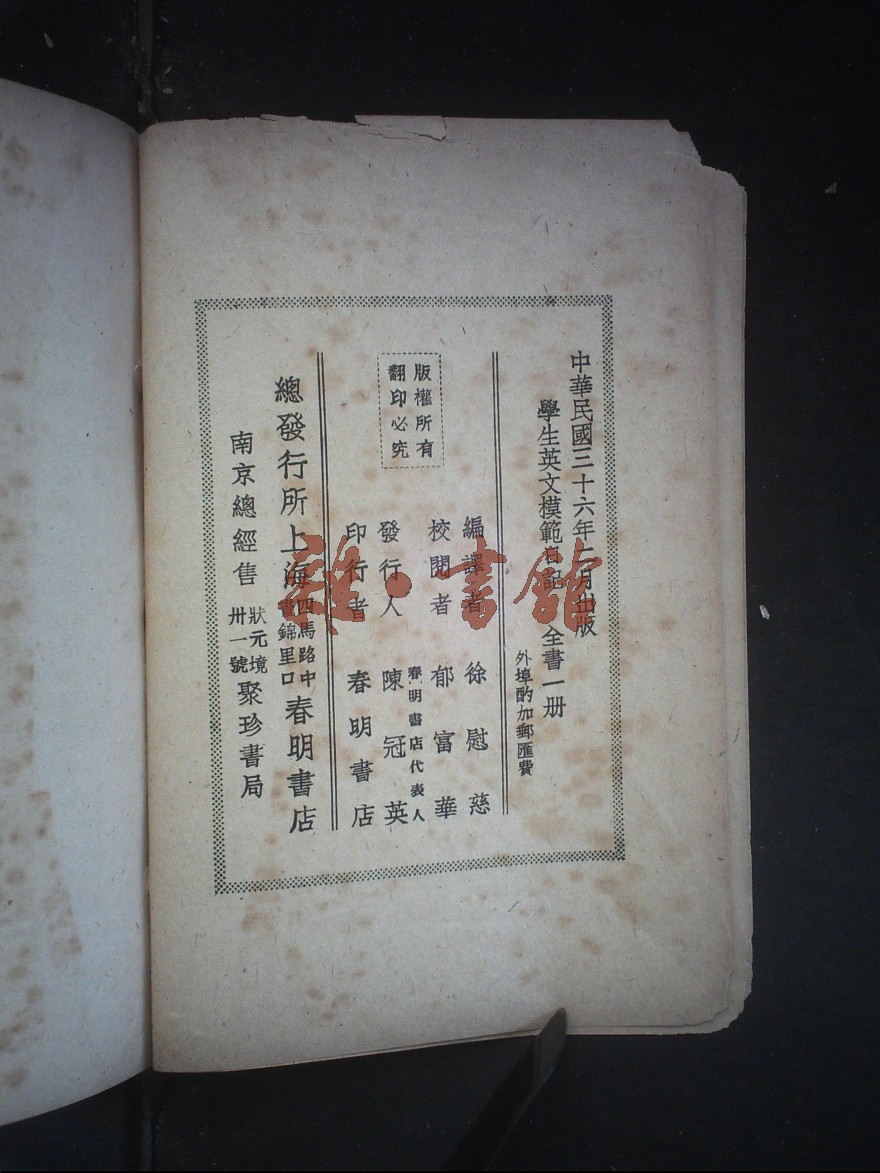 中華民國三十六年二月出版
學生英文模範日記 全書一册
外埠酌加郵匯費
編譯者 徐慰慈
校閱者 郁富華
春明書店代表人
發行人 陳冠英
印行者 春明書店
版權所有
翻印必究
總發行所上海四馬路中
錦里口
春明書店
南京總經售
狀元境
卅一號
聚珍書局
雜·書館